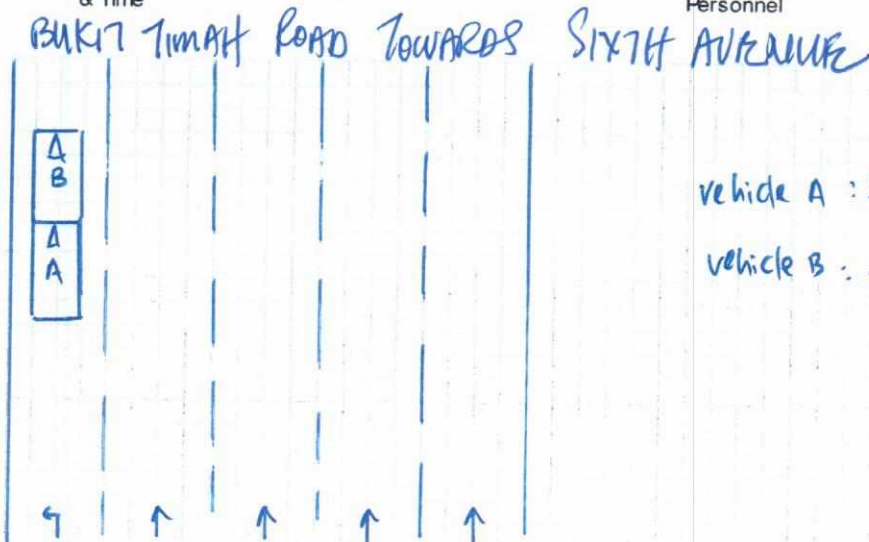 & Time
Personnel
BUKIT TIMAH ROAD TOWARDS SIXTH AVENUE
B
A
vehicle A :
vehicle B :